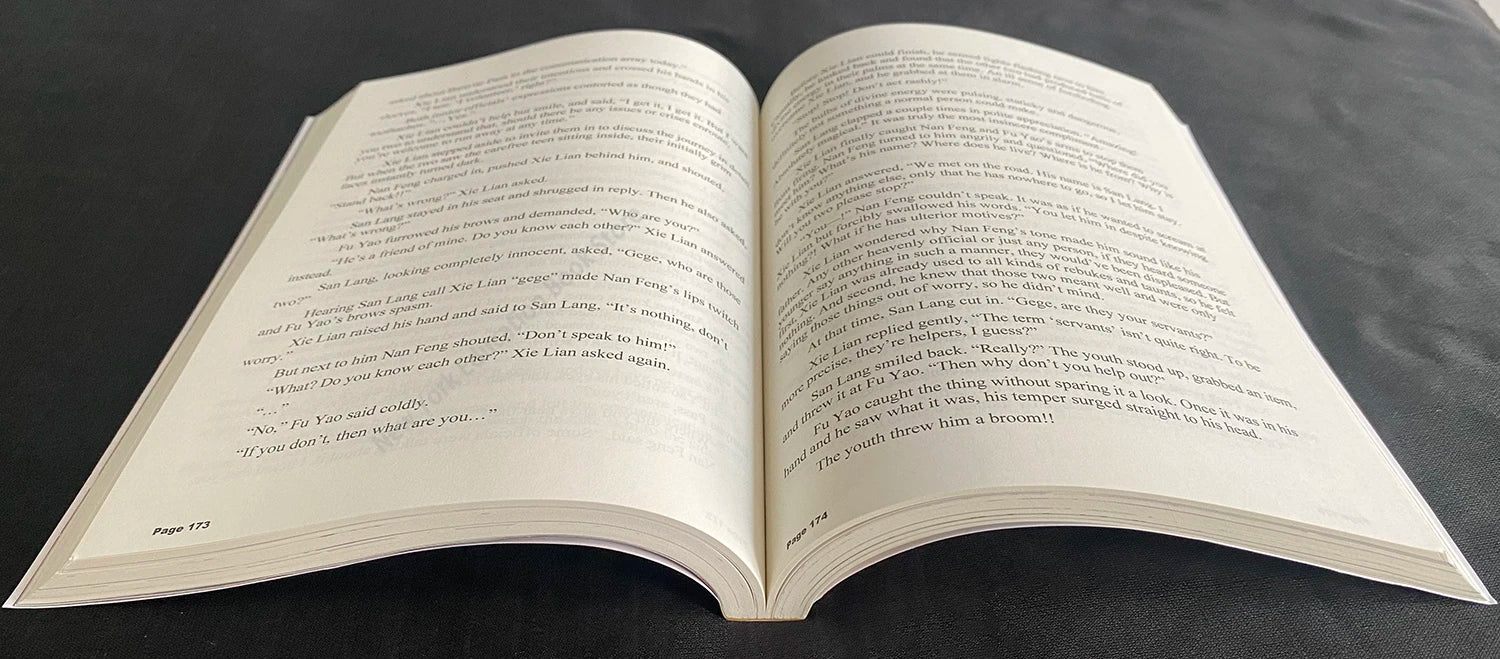 asked about them in Park to the communication array today."
Xie Lian understood their intentions and crossed his hands in his
"I was, 'I volunteer,' right?"
Both heavenly officials' expressions contorted as though they had
"...Yes."
Xie Lian couldn't help but smile, and said, "I get it, I get it. But I want
you two to understand that, should there be any issues or crises enroute,
you're welcome to run away at any time."
Xie Lian stepped aside to invite them in to discuss the journey in detail.
But when the two saw the carefree teen sitting inside, their initially grim
faces instantly turned dark.
Nan Feng charged in, pushed Xie Lian behind him, and shouted,
"Stand back!!"
"What's wrong?" Xie Lian asked.
San Lang stayed in his seat and shrugged in reply. Then he also asked,
"What's wrong?"
Fu Yao furrowed his brows and demanded, "Who are you?"
"He's a friend of mine. Do you know each other?" Xie Lian answered
instead.
San Lang, looking completely innocent, asked, "Gege, who are those
two?"
Hearing San Lang call Xie Lian "gege" made Nan Feng's lips twitch
and Fu Yao's brows spasm.
Xie Lian raised his hand and said to San Lang, "It's nothing, don't
worry."
But next to him Nan Feng shouted, "Don't speak to him!"
"What? Do you know each other?" Xie Lian asked again.
"…"
"No," Fu Yao said coldly.
"If you don't, then what are you…"
Page 173
Before Xie Lian could finish, he sensed lights flashing next to him
he looked back and found that the other two had summoned
in their palms at the same time. An ill sense of foreboding
Xie Lian, and he grabbed at them in alarm.
"Stop! Stop! Don't act rashly!"
The puffs of divine energy were pulsing, staticky and dangerous,
definitely not something a normal person could make.
San Lang clapped a couple times in polite appreciation. "Amazing!
Absolutely magical." It was truly the most insincere compliment.
Xie Lian finally caught Nan Feng and Fu Yao's arms to stop them
from firing. Nan Feng turned to him angrily and questioned, "Where did you
find him? What's his name? Where does he live? Where is he from? Why is
he with you?"
Xie Lian answered, "We met on the road. His name is San Lang. I
don't know anything else, only that he has nowhere to go, so I let him stay.
Will you two please stop?"
"You…!" Nan Feng couldn't speak. It was as if he wanted to scream at
Xie Lian, but forcibly swallowed his words. "You let him in despite knowing
nothing?! What if he has ulterior motives?"
Xie Lian wondered why Nan Feng's tone made him sound like his
father. Any other heavenly official or just any person, if they heard someone
younger say anything in such a manner, they would've been displeased. But
first, Xie Lian was already used to all kinds of rebukes and taunts, so he felt
nothing. And second, he knew that those two meant well and were only
saying those things out of worry, so he didn't mind.
At that time, San Lang cut in. "Gege, are they your servants?"
Xie Lian replied gently, "The term 'servants' isn't quite right. To be
more precise, they're helpers, I guess?"
San Lang smiled back. "Really?" The youth stood up, grabbed an item,
and threw it at Fu Yao. "Then why don't you help out?"
Fu Yao caught the thing without sparing it a look. Once it was in his
hand and he saw what it was, his temper surged straight to his head.
The youth threw him a broom!!
Page 174